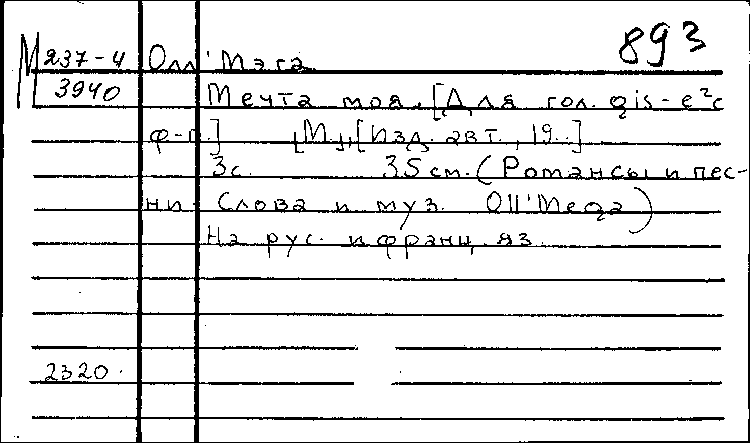 893
М 237-4 Олл'Мэга
3940 Мечта моя. [Для гол. gis-e²c
ф-п.] [М.], [Изд. авт., 19..]
3с. 35 см. (Романсы и пес-
ни. Слова и муз. Oll'Mega)
На рус. и франц. яз.
2320.